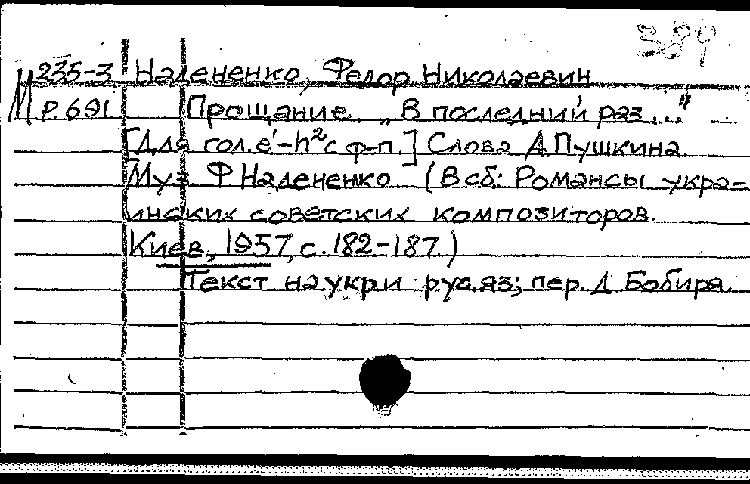 389
М 235-3 Надененко, Федор Николаевин
Р.691 Прощание. „В последний раз..."
[Для гол. e'-h² с ф-п.] Слова А.Пушкина.
Муз. Ф Надененко (В сб: Романсы укра=
инских советских композиторов.
Киев, 1957, с. 182-187.)
Текст на укр и рус.яз; пер. Д Бобиря.